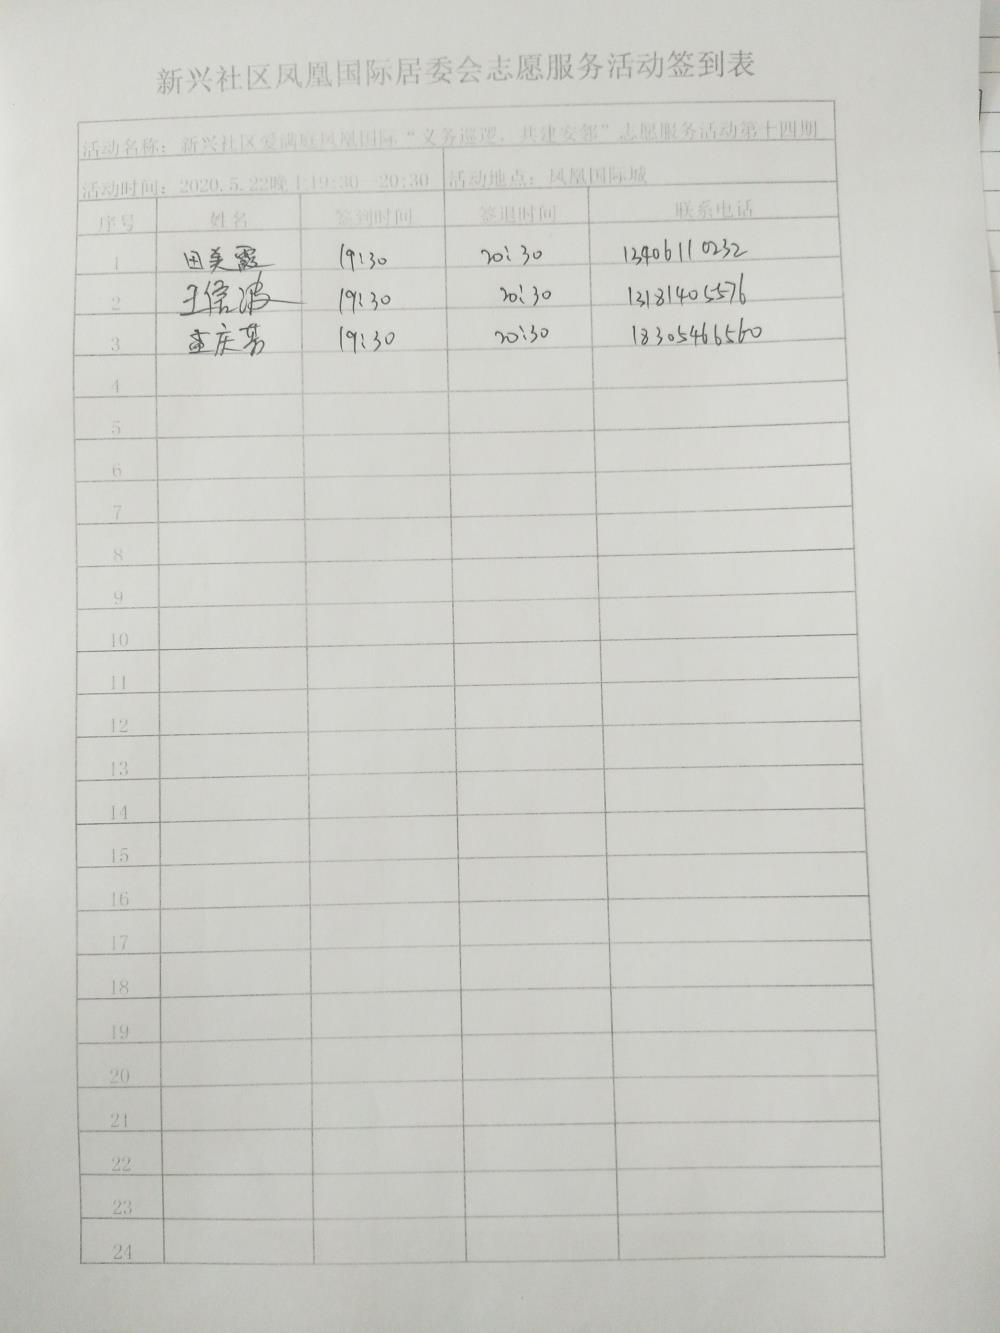 新兴社区凤凰国际居委会志愿服务活动签到表
活动名称：新兴社区爱满庭凤凰国际“义务巡逻，共建安邻”志愿服务活动第十四期
活动时间：2020.5.22晚上19:30—20:30 活动地点：凤凰国际城
序号 姓名 签到时间 签退时间 联系电话
1 田美霞 19:30 20:30 13406110232
2 王信波 19:30 20:30 13181405576
3 孟庆芳 19:30 20:30 18305466560
4
5
6
7
8
9
10
11
12
13
14
15
16
17
18
19
20
21
22
23
24